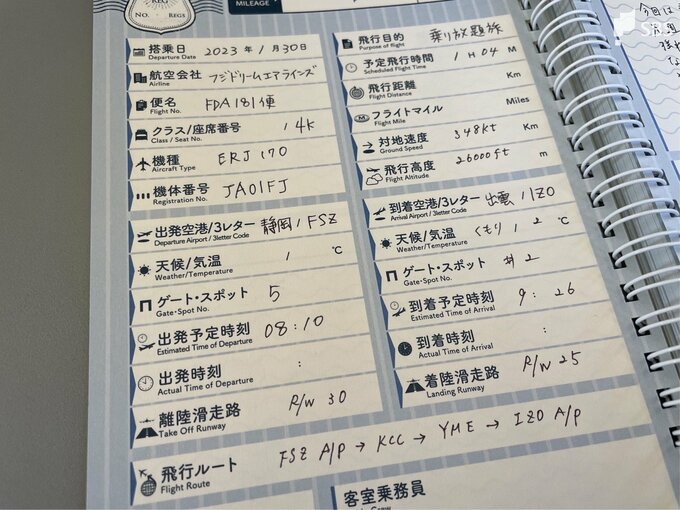 REG
No. REGS
MILEAGE
搭乗日 2023年1月30日
Departure Date
航空会社 フジドリームエアラインズ
Airline
便名 FDA181便
Flight No.
クラス/座席番号 / 4K
Class / Seat No.
機種 ERJ170
Aircraft Type
機体番号 JA01FJ
Registration No.
飛行目的 乗り放題旅
Purpose of flight
予定飛行時間 1 H 04 M
Scheduled Flight Time
飛行距離 Km
Flight Distance
フライトマイル Miles
Flight Mile
対地速度 348kt Km
Ground Speed
飛行高度 26000ft m
Flight Altitude
出発空港/3レター 静岡/FSZ
Departure Airport / 3letter Code
天候/気温 / ℃
Weather/Temperature
ゲート・スポット 5
Gate・Spot No.
出発予定時刻 08:10
Estimated Time of Departure
出発時刻 :
Actual Time of Departure
離陸滑走路 R/W 30
Take Off Runway
到着空港/3レター 出雲/IZO
Arrival Airport / 3letter Code
天候/気温 くもり / 2 ℃
Weather/Temperature
ゲート・スポット #2
Gate・Spot No.
到着予定時刻 9:26
Estimated Time of Arrival
到着時刻 :
Actual Time of Arrival
着陸滑走路 R/W 25
Landing Runway
飛行ルート FSZ A/P → KCC → YME → IZO A/P
Flight Route
客室乗務員